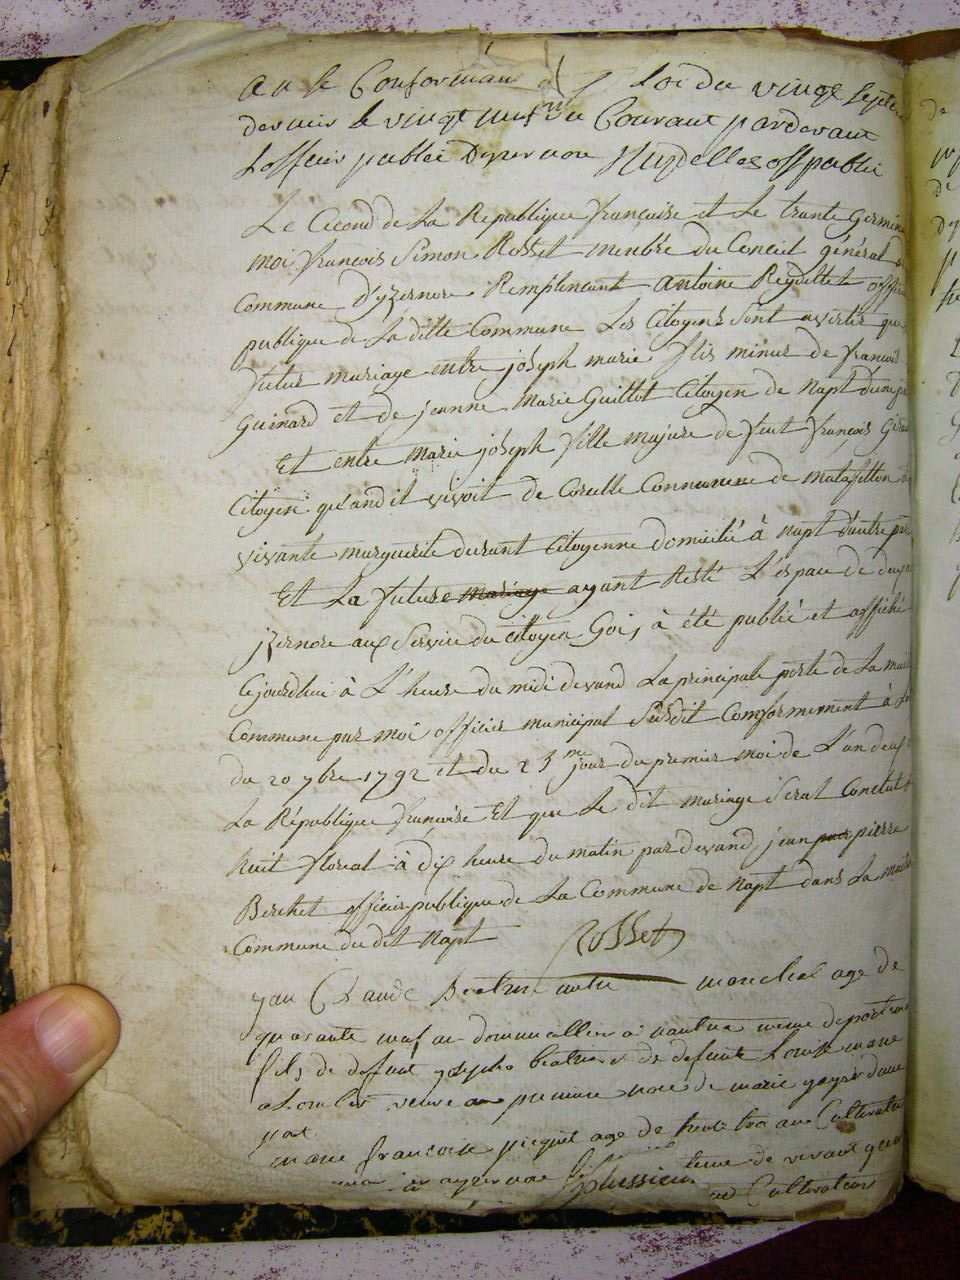 an le Conforman Loi du vingt septem
dernier le vingt neuf du Courant pardevant
Loffisier publec Dyzernore offpublic
Le Cecond de La République françoise et Le trante Germina
moi françois Simon Rosset menbre du Conceil général
Commune D'yzernore Remplencent Antoine Reydellet offici
publique de La ditte Commune Les Citoyens Sont avertis que
futur mariage entre joseph marie fils mineur de francois
Guinard et de jeanne Marie Guillot Citoyen de Napt d'une pa
Et entre Marie joseph fille majure de feut françois Gi
Citoyen quandil vivoit de Corcelle Commune de Matafellon
vivante marguerite durant Citoyenne domiciliè à Napt d'autre par
Et La future mariage ayant Resté L'espace de deux
jzernore aux Service du Citoyen Goi, à été publié et affiché
Cejourdhui à L'heure du midi devand La principale porte de La mais
Commune par moi officier municipal Susdit Comformement à La
du 20 7bre 1792 et du 25me jour du premier moi de L'an deux
La République françoise Et que Le dit mariage Serat Conclut
huit floreal à dix heure du matin par devand jean pier pierre
Berchet officier publique de La Commune de Napt dans La maison
Commune du dit Napt Rosset
jan Claude marechal age de
quarante neuf an
fils de defunt joseph de defunte Louise marie
veuve an premiere nore de marie
par
marie francoise age de trente troi ans Cultivatri
a ayzernore
Cultivateur